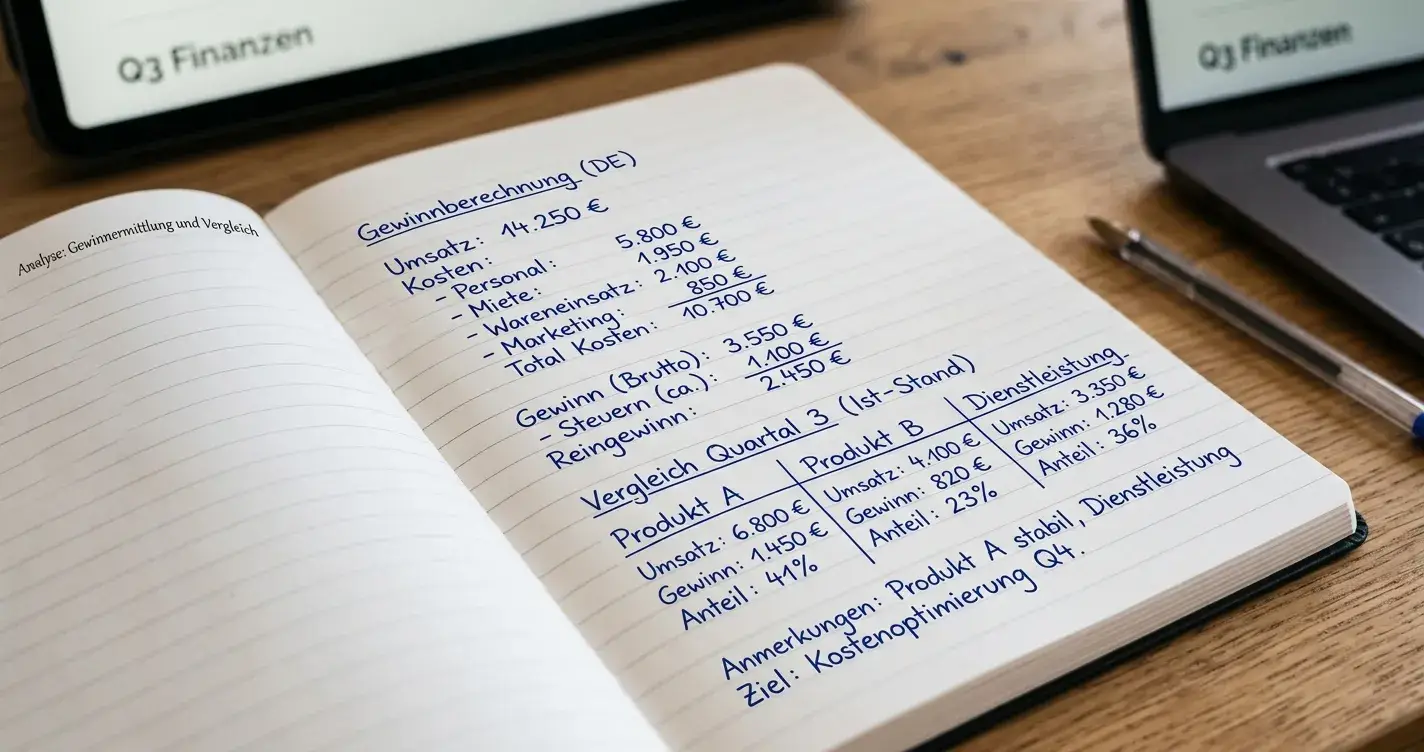 Q3 Finanzen
Q3 Finanzen
Analyse: Gewinnermittlung und Vergleich
Gewinnberechnung (DE)
Umsatz: 14.250 €
Kosten:
- Personal: 5.800 €
- Miete: 1.950 €
- Wareneinsatz: 2.100 €
- Marketing: 850 €
Total Kosten: 10.700 €
Gewinn (Brutto): 3.550 €
- Steuern (ca.): 1.100 €
Reingewinn: 2.450 €
Vergleich Quartal 3 (Ist-Stand)
Produkt A
Umsatz: 6.800 €
Gewinn: 1.450 €
Anteil: 41%
Produkt B
Umsatz: 4.100 €
Gewinn: 820 €
Anteil: 23%
Dienstleistung
Umsatz: 3.350 €
Gewinn: 1.280 €
Anteil: 36%
Anmerkungen: Produkt A stabil, Dienstleistung
Ziel: Kostenoptimierung Q4.